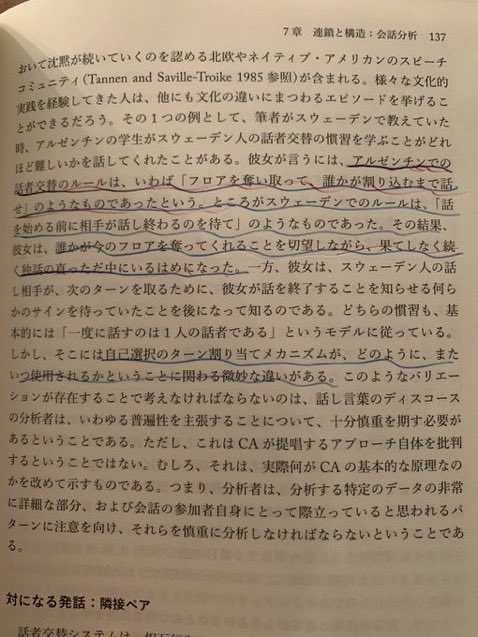 7章 連鎖と構造：会話分析 137
おいて沈黙が続いていくのを認める北欧やネイティブ・アメリカンのスピーチ
コミュニティ(Tannen and Saville-Troike 1985 参照)が含まれる。様々な文化的
実践を経験してきた人は、他にも文化の違いにまつわるエピソードを挙げるこ
とができるだろう。その1つの例として、筆者がスウェーデンで教えていた
時、アルゼンチンの学生がスウェーデン人の話者交替の慣習を学ぶことがどれ
ほど難しいかを話してくれたことがある。彼女が言うには、アルゼンチンでの
話者交替のルールは、いわば「フロアを奪い取って、誰かが割り込むまで話
せ」のようなものであったという。ところがスウェーデンでのルールは、「話
を始める前に相手が話し終わるのを待て」のようなものであった。その結果、
彼女は、誰かが今のフロアを奪ってくれることを切望しながら、果てしなく続
く独話の真っただ中にいるはめになった。一方、彼女は、スウェーデン人の話
し相手が、次のターンを取るために、彼女が話を終了することを知らせる何ら
かのサインを待っていたことを後になって知るのである。どちらの慣習も、基
本的には「一度に話すのは1人の話者である」というモデルに従っている。
しかし、そこには自己選択のターン割り当てメカニズムが、どのように、また
いつ使用されるかということに関わる微妙な違いがある。このようなバリエー
ションが存在することで考えなければならないのは、話し言葉のディスコース
の分析者は、いわゆる普遍性を主張することについて、十分慎重を期す必要が
あるということである。ただし、これはCAが提唱するアプローチ自体を批判
するということではない。むしろ、それは、実際何がCAの基本的な原理なの
かを改めて示すものである。つまり、分析者は、分析する特定のデータの非常
に詳細な部分、および会話の参加者自身にとって際立っていると思われるパ
ターンに注意を向け、それらを慎重に分析しなければならないということであ
る。
対になる発話：隣接ペア
話者交替システムは、相互行